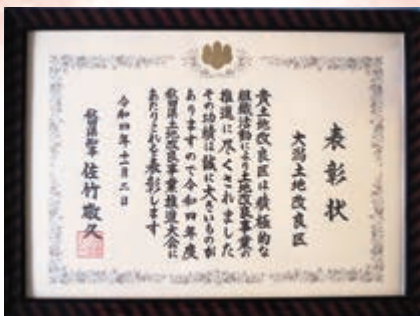 表彰状
大潟土地改良区
貴土地改良区は積極的な
組織活動により土地改良事業の
推進に尽くされました
その功績は誠に大きいものが
ありますので令和四年度
秋田県土地改良事業推進大会に
あたりこれを表彰します
令和四年十一月二日
秋田県知事 佐竹敬久